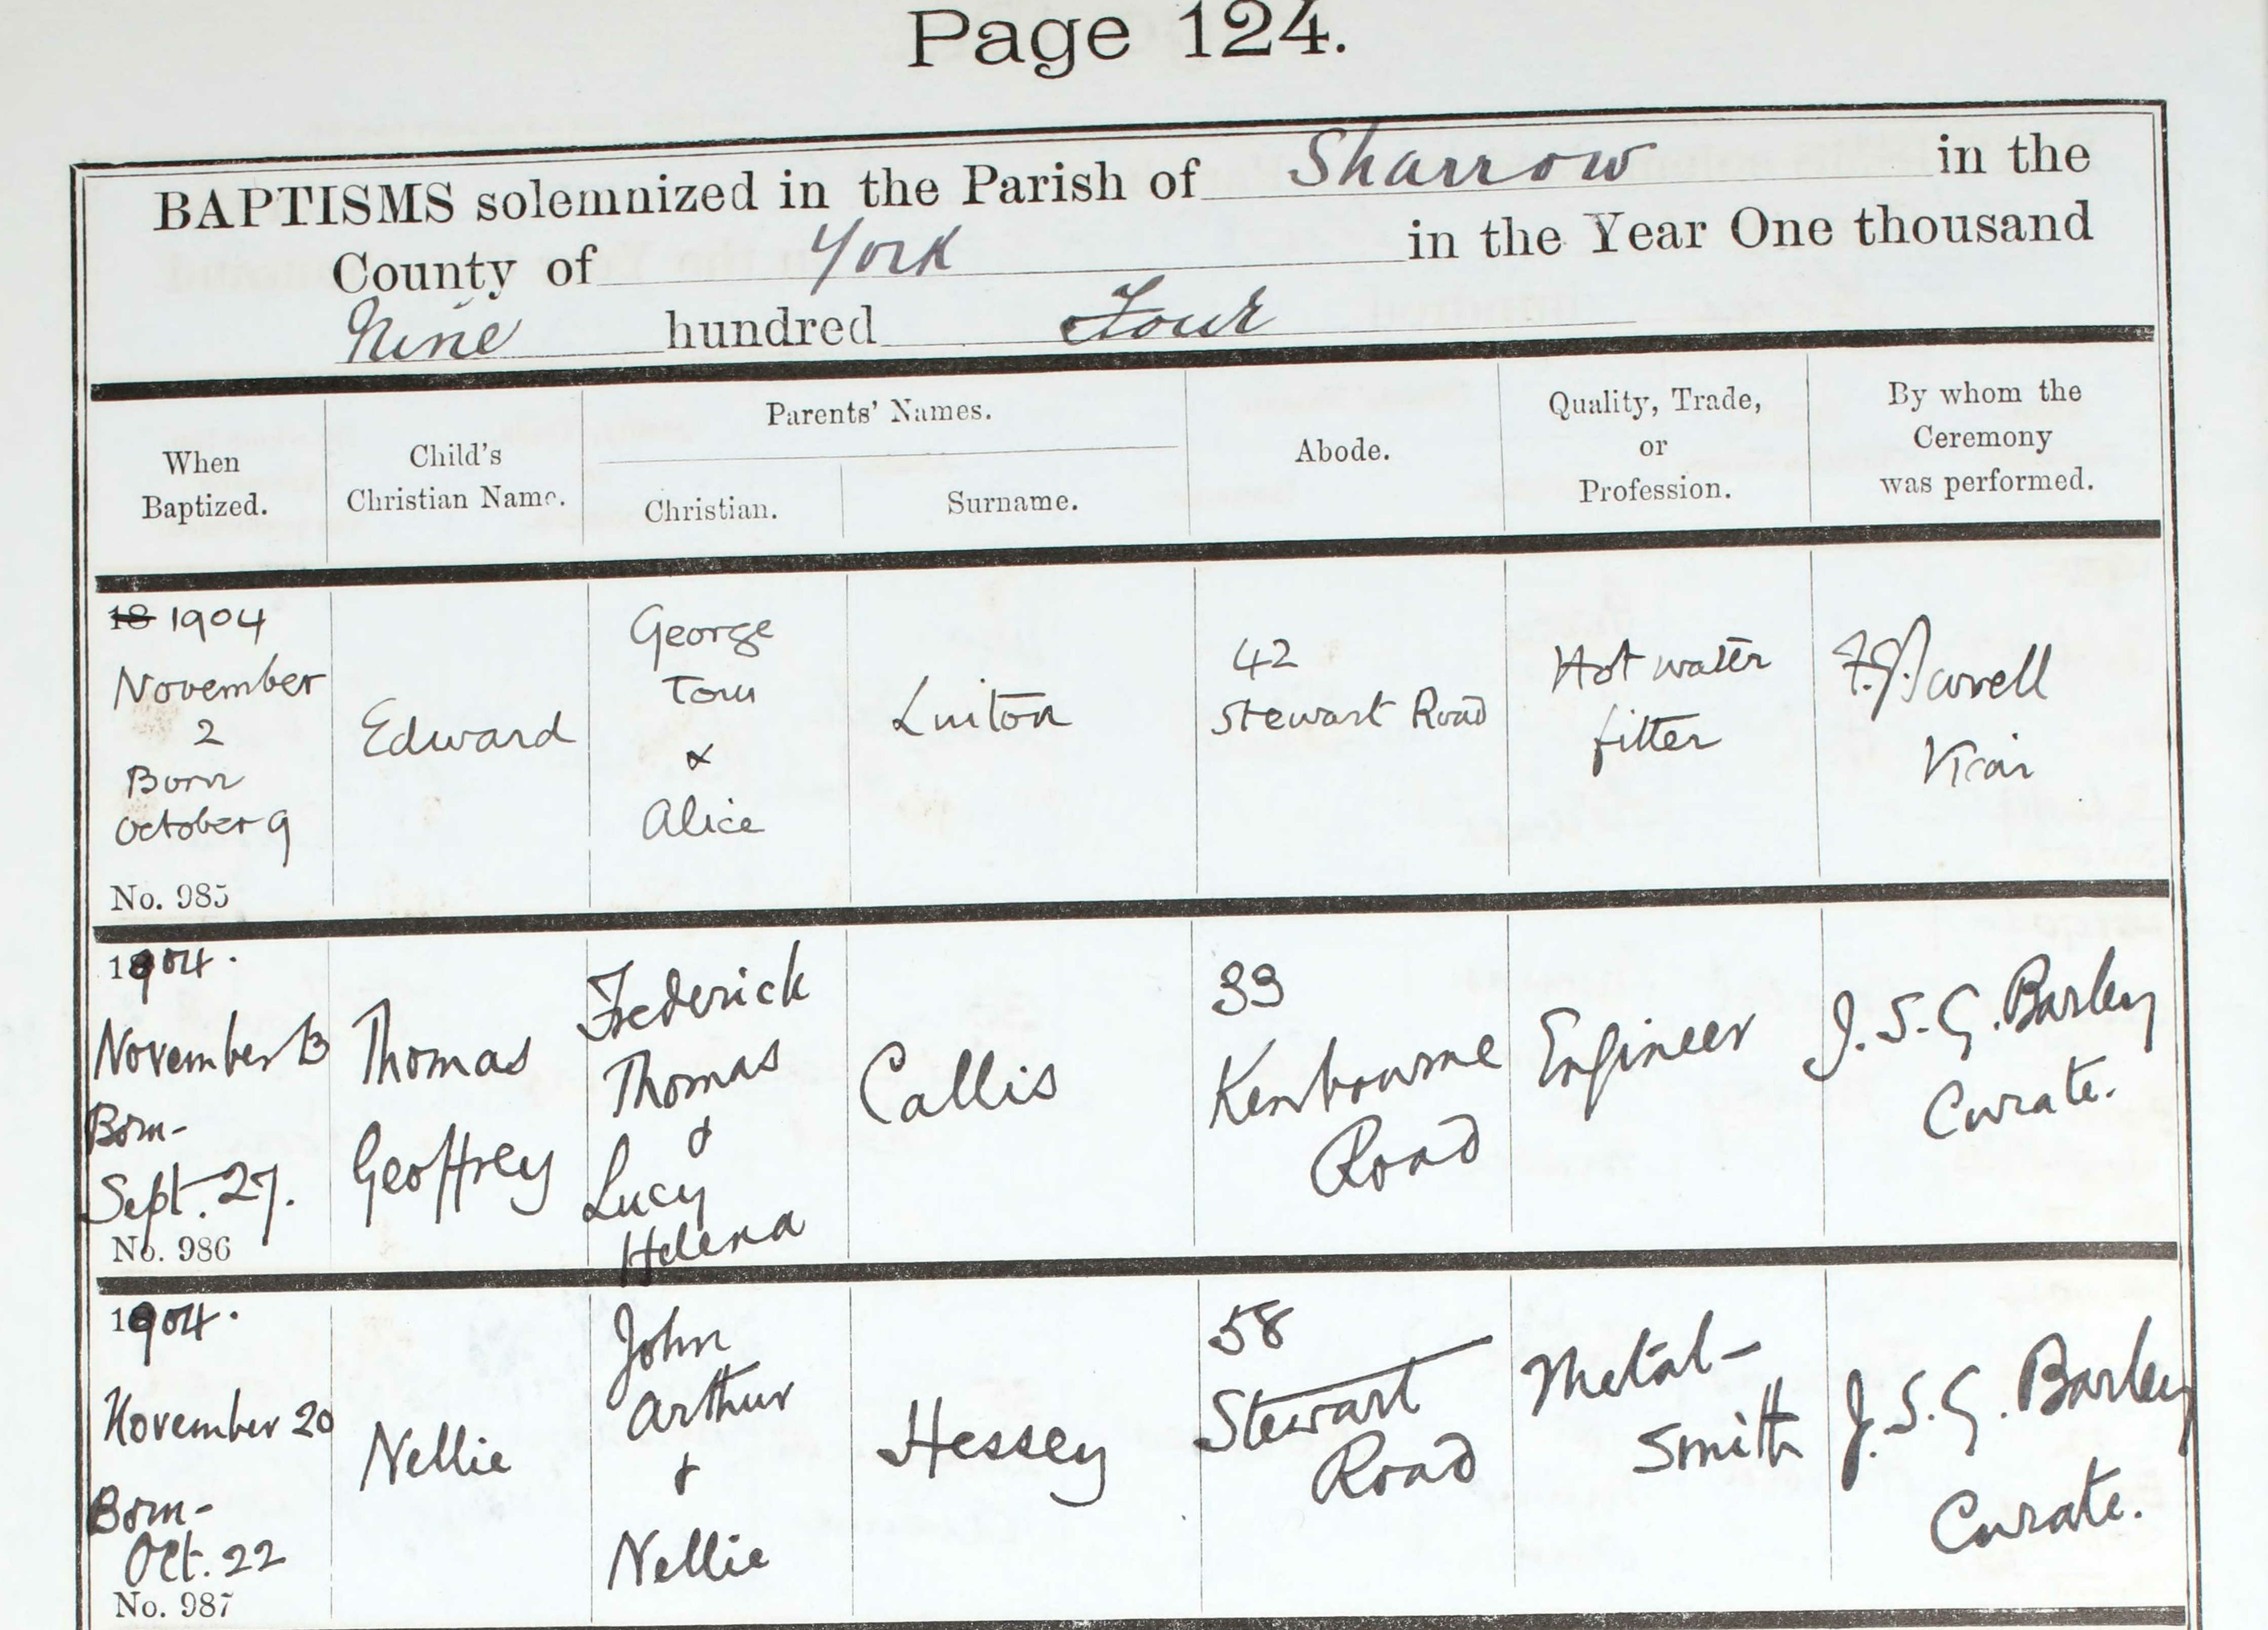 Page 124.
BAPTISMS solemnized in the Parish of Sharrow in the
County of York in the Year One thousand
Nine hundred Four
When
Baptized.
Child's
Christian Name.
Parents' Names.
Christian.
Surname.
Abode.
Quality, Trade,
or
Profession.
By whom the
Ceremony
was performed.
18 1904
November
2
Born
October 9
No. 985
Edward
George
Tom
&
Alice
Linton
42
Stewart Road
Hot water
fitter
Vicar
1904.
November 13
Born-
Sept. 27.
No. 986
Thomas
Geoffrey
Frederick
Thomas
&
Lucy
Helena
Callis
33
Kenbourne
Road
Engineer
J. S. G. Barley
Curate.
1904.
November 20
Born-
Oct. 22
No. 987
Nellie
John
Arthur
&
Nellie
Hessey
58
Stewart
Road
Metal-
Smith
J. S. G. Barley
Curate.